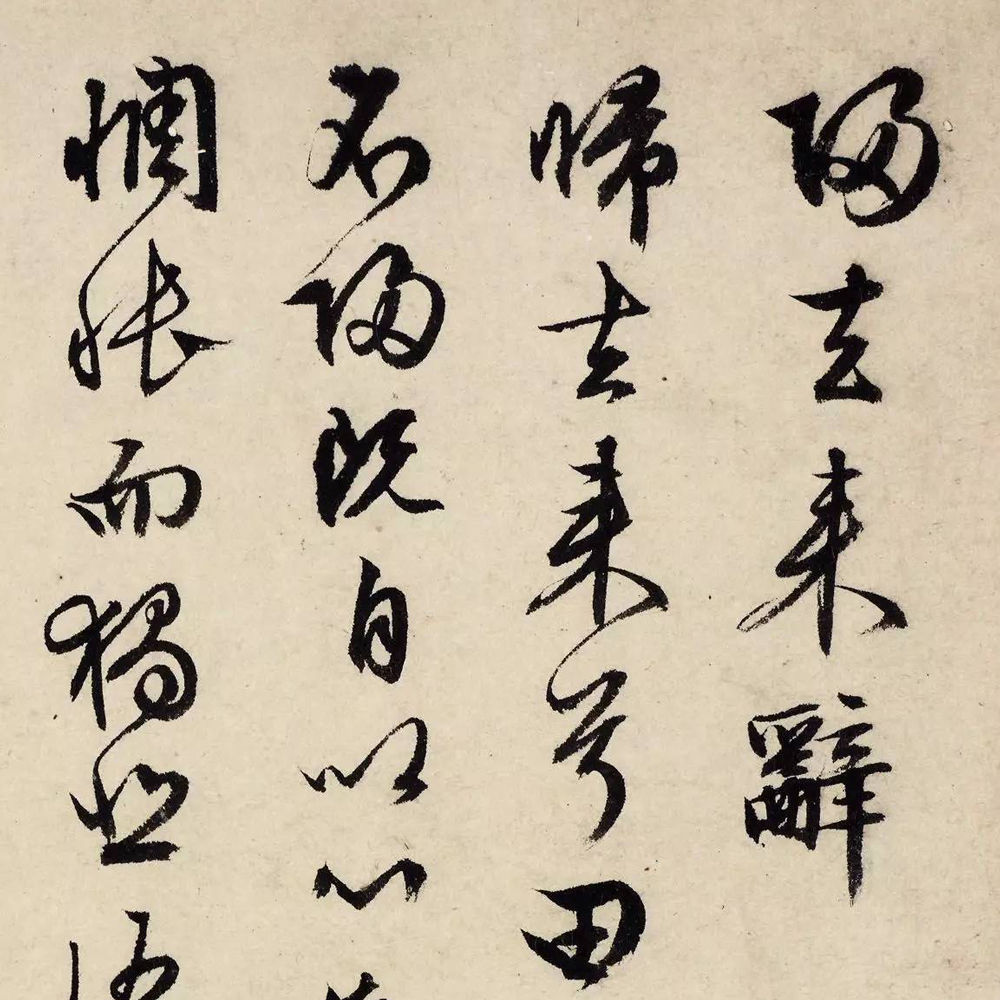 歸去来辭
歸去来兮田
不歸既自以心
惆悵而獨悲